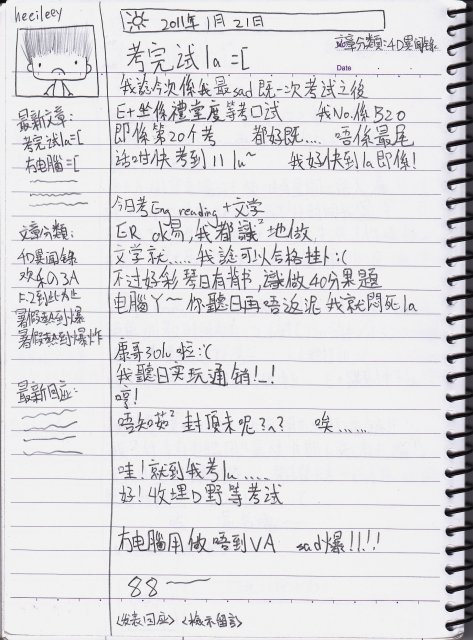 heeileey
2011年1月21日
文章分類:4D異聞錄
Date
考完試la=[
我諗今次係我最sad既一次考試之後
E+坐係禮堂度等考口試 我No.係B20
即係第20个考 都好既.... 唔係最尾
話咁快考到11lu~ 我好快到la即係!
最新文章:
考完試la=[
冇電腦=[
今日考Eng reading+文学
ER ok易,我都識²地做
文学就.....我諗可以合格挂卜:(
不过好彩琴日有背书,識做40分果題
电腦丫~你聽日再唔返泥我就悶死la
文章分類:
4D異聞錄
欢乐の3A
F.2到此为止
暑假熱到爆
暑假熱到爆炸
康哥30lu啦:(
我聽日实玩通销!_!
哼!
唔知茹²封頂未呢?^? 唉......
最新回应:
哇!就到我考lu....
好!收埋D野等考試
冇电腦用做唔到VA sad爆!!!!
88~~
<发表回应> <检示留言>